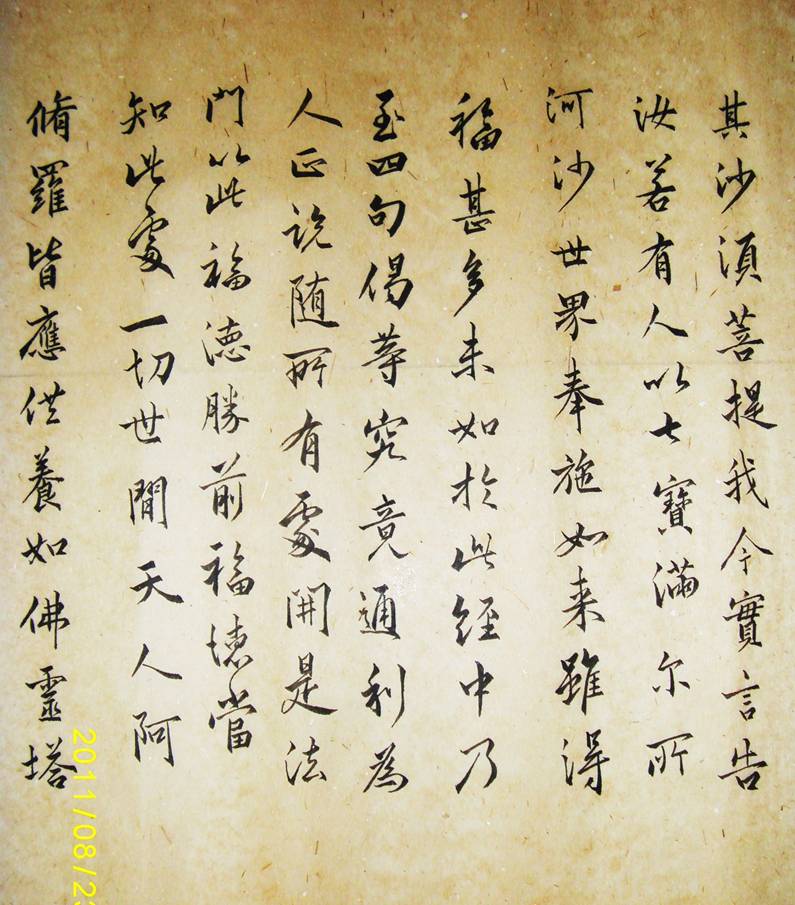 其沙湏菩提我今實言告
汝若有人以七寶滿尔所
河沙世界奉施如来雖得
福甚多未如於此経中乃
至四句偈等究竟通利為
人正説随所有處開是法
門以此福徳勝前福徳當
知此處一切世間天人阿
脩羅皆應供養如佛靈塔
2011/08/23